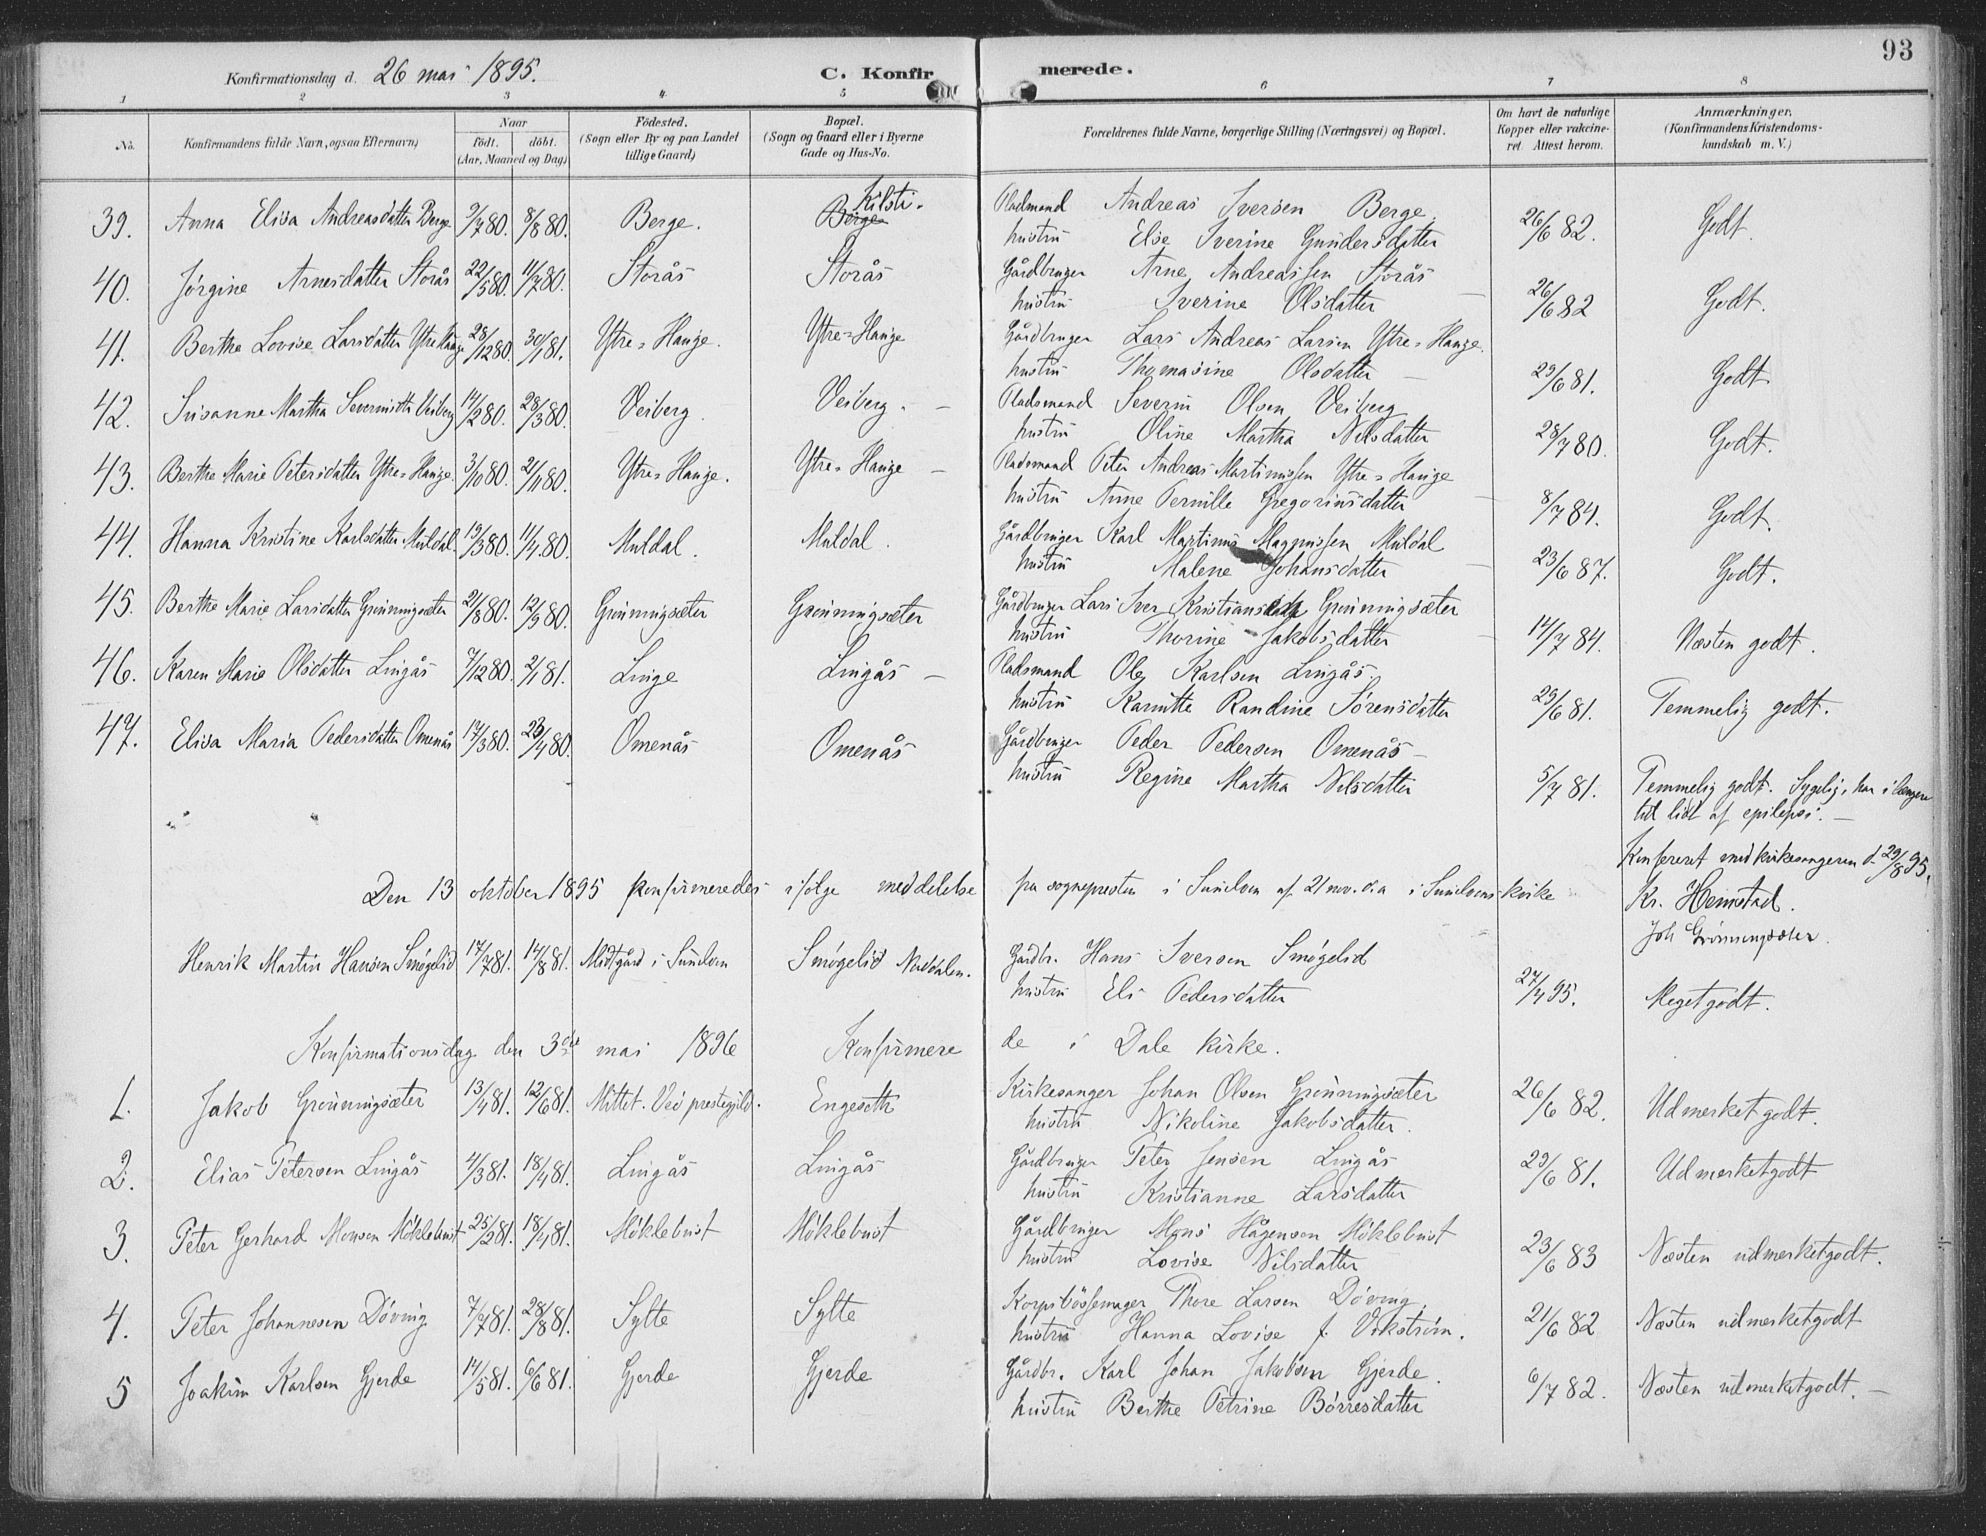 93
Konfirmationsdag d. 26 mai 1895. C. Konfirmerede.
1 2 3 4 5 6 7 8
No. Konfirmandens fulde Navn, ogsaa Efternavn) Naar födt. döbt. (Aar, Maaned og Dag) Födested. (Sogn eller By og paa Landet tillige Gaard) Bopæl. (Sogn og Gaard eller i Byerne Gade og Hus-No. Forældrenes fulde Navne, borgerlige Stilling (Næringsvei) og Bopæl. Om havt de naturlige Kopper eller vakcineret. Attest herom. Anmærkninger. (Konfirmandens Kristendomskundskab m. V.)
39. Anna Elisa Andreasdatter Berge 9/7 80. 8/8 80. Berge. Berge Kilsti. Pladsmand Andreas Iversen Berge.
hustru Else Iverine Gundersdatter 26/6 82. Godt.
40. Jørgine Arnesdatter Storås 22/5 80. 11/7 80. Storås Storås Gårdbruger Arne Andreassen Storås
hustru Iverine Olsdatter 26/6 82 Godt.
41. Berthe Lovise Larsdatter Ytre Hauge 28/12 80. 30/1 81. Ytre-Hauge. Ytre-Hauge Gårdbruger Lars Andreas Larsen Ytre-Hauge.
hustru Thomasine Olsdatter 29/6 81. Godt.
42. Susanne Martha Severinsdtr Veiberg 14/2 80. 28/3 80. Veiberg. Veiberg. Pladsmand Severin Olsen Veiberg
hustru Oline Martha Nilsdatter 28/7 80. Godt.
43. Berthe Marie Petersdatter Ytre-Hauge 3/10 80. 21/11 80. Ytre-Hauge. Ytre-Hauge Pladsmand Peter Andreas Martinussen Ytre-Hauge
hustru Anne Pernille Gregoriusdatter 8/7 84. Godt.
44. Hanna Kristine Karlsdatter Muldal. 19/3 80. 11/4 80. Muldal. Muldal. Gårdbruger Karl Martinus Magnussen Muldal
hustru Malene Johansdatter 23/6 87. Godt.
45. Berthe Marie Larsdatter Grønningsæter 21/8 80. 12/9 80. Grønningsæter Grønningsæter Gårdbruger Lars Iver Grønningsæter
hustru Thorine Jakobsdatter 14/7 84. Næsten godt.
46. Karen Marie Olsdatter Lingås 7/12 80. 2/1 81. Linge Lingås Pladsmand Ole Karlsen Lingås
hustru Randine Sørensdatter 29/6 81. Temmelig godt.
47. Elisa Maria Pedersdatter Omenås 17/3 80. 23/4 80. Omenås Omenås Gårdbruger Peder Pedersen Omenås
hustru Regine Martha Nilsdatter 5/7 81. Temmelig godt. Sygelig, har i længere
tid lidt af epilepsi.
Konfereret med kirkesangeren d. 29/8 95.
Den 13 oktober 1895 konfirmeredes ifølge meddelelse fra sognepresten i Sunelven af 21 nov. d.a. i Sunelvens kirke Kr. Heimstad.
Joh Grönningsæter.
Henrik Martin Hansen Smøgelid 17/7 81. 14/8 81. Midtgård i Sunelven Smøgelid Norddalen. Gårdbr. Hans Iversen Smøgelid
hustru Els Pedersdatter 27/4 95. Meget godt.
Konfirmationsdag den 3die mai 1896 Konfirmerede i Dale kirke.
1. Jakob Grønningsæter 13/4 81. 12/6 81. Mittet. Veø prestegjeld. Engeseth Kirkesanger Johan Olsen Grønningsæter
hustru Nikoline Jakobsdatter. 26/6 82. Udmerket godt.
2. Elias Petersen Lingås 4/3 81. 18/4 81. Lingås Lingås Gårdbruger Peter Jensen Lingås
hustru Kristianne Larsdatter 29/6 81. Udmerket godt
3. Peter Gerhard Monsen Möklebust 25/2 81. 18/4 81. Möklebust Möklebust Gårdbruger Mons Hågensen Möklebust
hustru Lovise Nilsdatter 23/6 83 Næsten udmerket godt.
4. Peter Johannesen Döving 7/7 81. 28/8 81. Sylte Sylte Korpsbössemager Thore Larsen Döving.
hustru Hanna Lovise f. Vikström. 21/6 82 Næsten udmerket godt
5 Joakim Karlsen Gjerde 14/5 81. 6/6 81. Gjerde Gjerde Gårdbr. Karl Johan Jakobsen Gjerde.
hustru Berthe Petrine Børresdatter 6/7 82. Næsten udmerket godt.